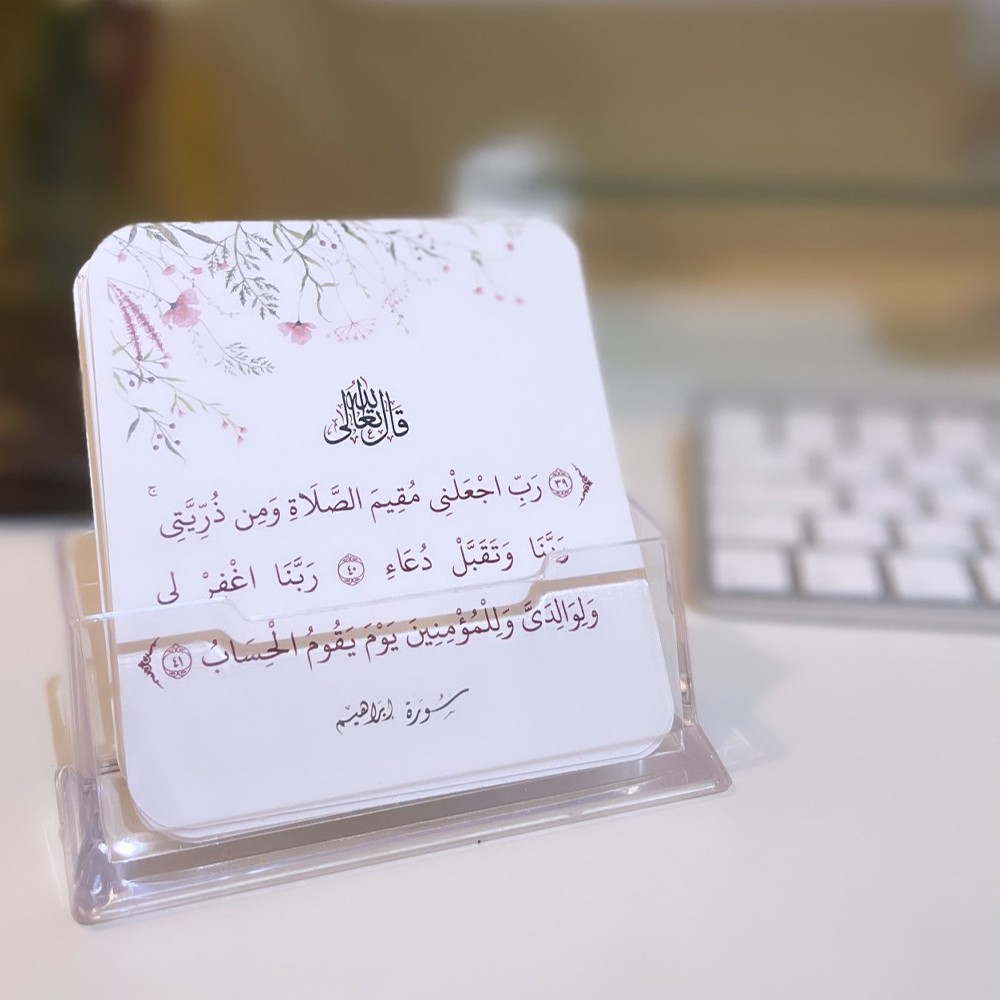 قال الله تعالى
﴿٣٩﴾ رَبِّ اجْعَلْنِى مُقِيمَ الصَّلَاةِ وَمِن ذُرِّيَّتِى ۚ
رَبَّنَا وَتَقَبَّلْ دُعَاءِ ﴿٤٠﴾ رَبَّنَا اغْفِرْ لِى
وَلِوَالِدَىَّ وَلِلْمُؤْمِنِينَ يَوْمَ يَقُومُ الْحِسَابُ ﴿٤١﴾
سورة إبراهيم